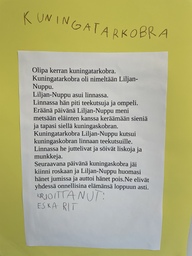 KUNINGATARKOBRA
Olipa kerran kuningatarkobra.
Kuningatarkobra oli nimeltään Liljan-
Nuppu.
Liljan-Nuppu asui linnassa.
Linnassa hän piti teekutsuja ja ompeli.
Eräänä päivänä Liljan-Nuppu meni
metsään eläinten kanssa keräämään sieniä
ja tapasi siellä kuningaskobran.
Kuningatarkobra Liljan-Nuppu kutsui
kuningaskobran linnaan teekutsuille.
Linnassa he juttelivat ja söivät liskoja ja
munkkeja.
Seuraavana päivänä kuningaskobra jäi
kiinni roskaan ja Liljan-Nuppu huomasi
hänet jumissa ja auttoi hänet pois.Ne elivät
yhdessä onnellisina elämänsä loppuun asti.
KIRJOITTANUT:
ESKARIT